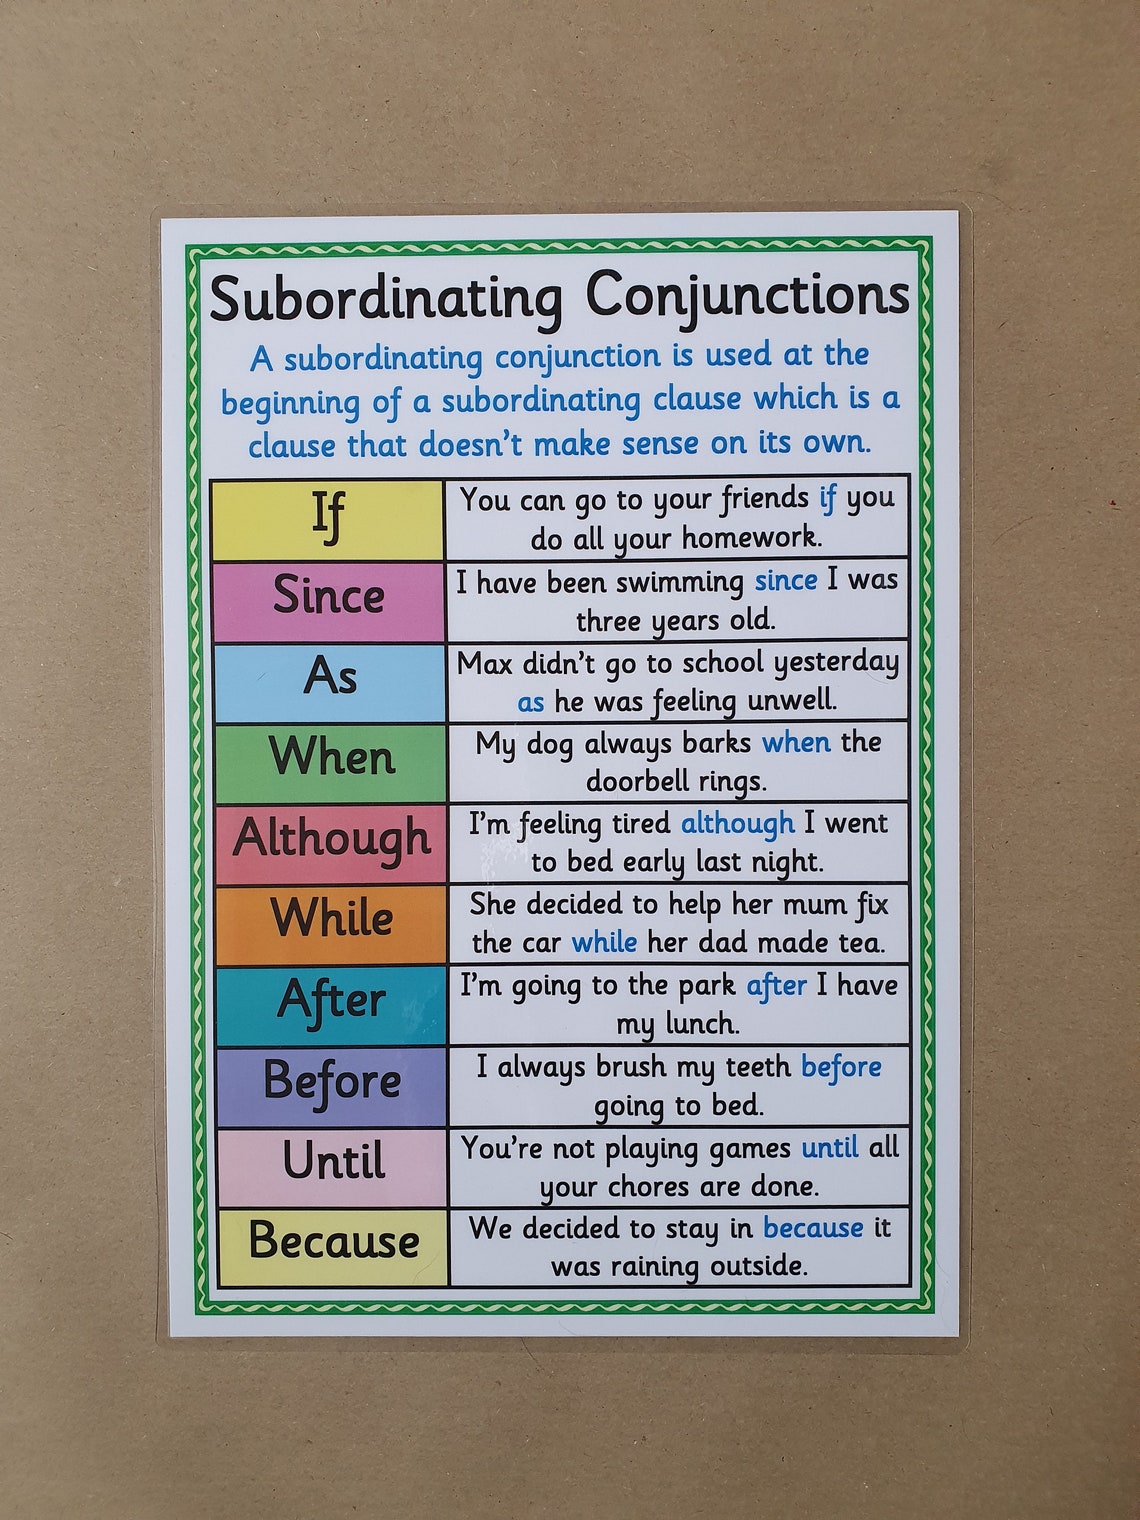 Subordinating Conjunctions
A subordinating conjunction is used at the
beginning of a subordinating clause which is a
clause that doesn't make sense on its own.
If
You can go to your friends if you
do all your homework.
Since
I have been swimming since I was
three years old.
As
Max didn't go to school yesterday
as he was feeling unwell.
When
My dog always barks when the
doorbell rings.
Although
I'm feeling tired although I went
to bed early last night.
While
She decided to help her mum fix
the car while her dad made tea.
After
I'm going to the park after I have
my lunch.
Before
I always brush my teeth before
going to bed.
Until
You're not playing games until all
your chores are done.
Because
We decided to stay in because it
was raining outside.